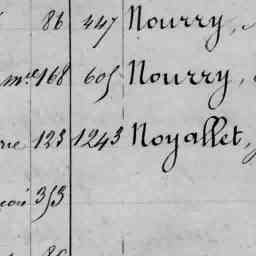 86 447 Nourry,
168 605 Nourry,
123 1243 Noyallet,
353
86